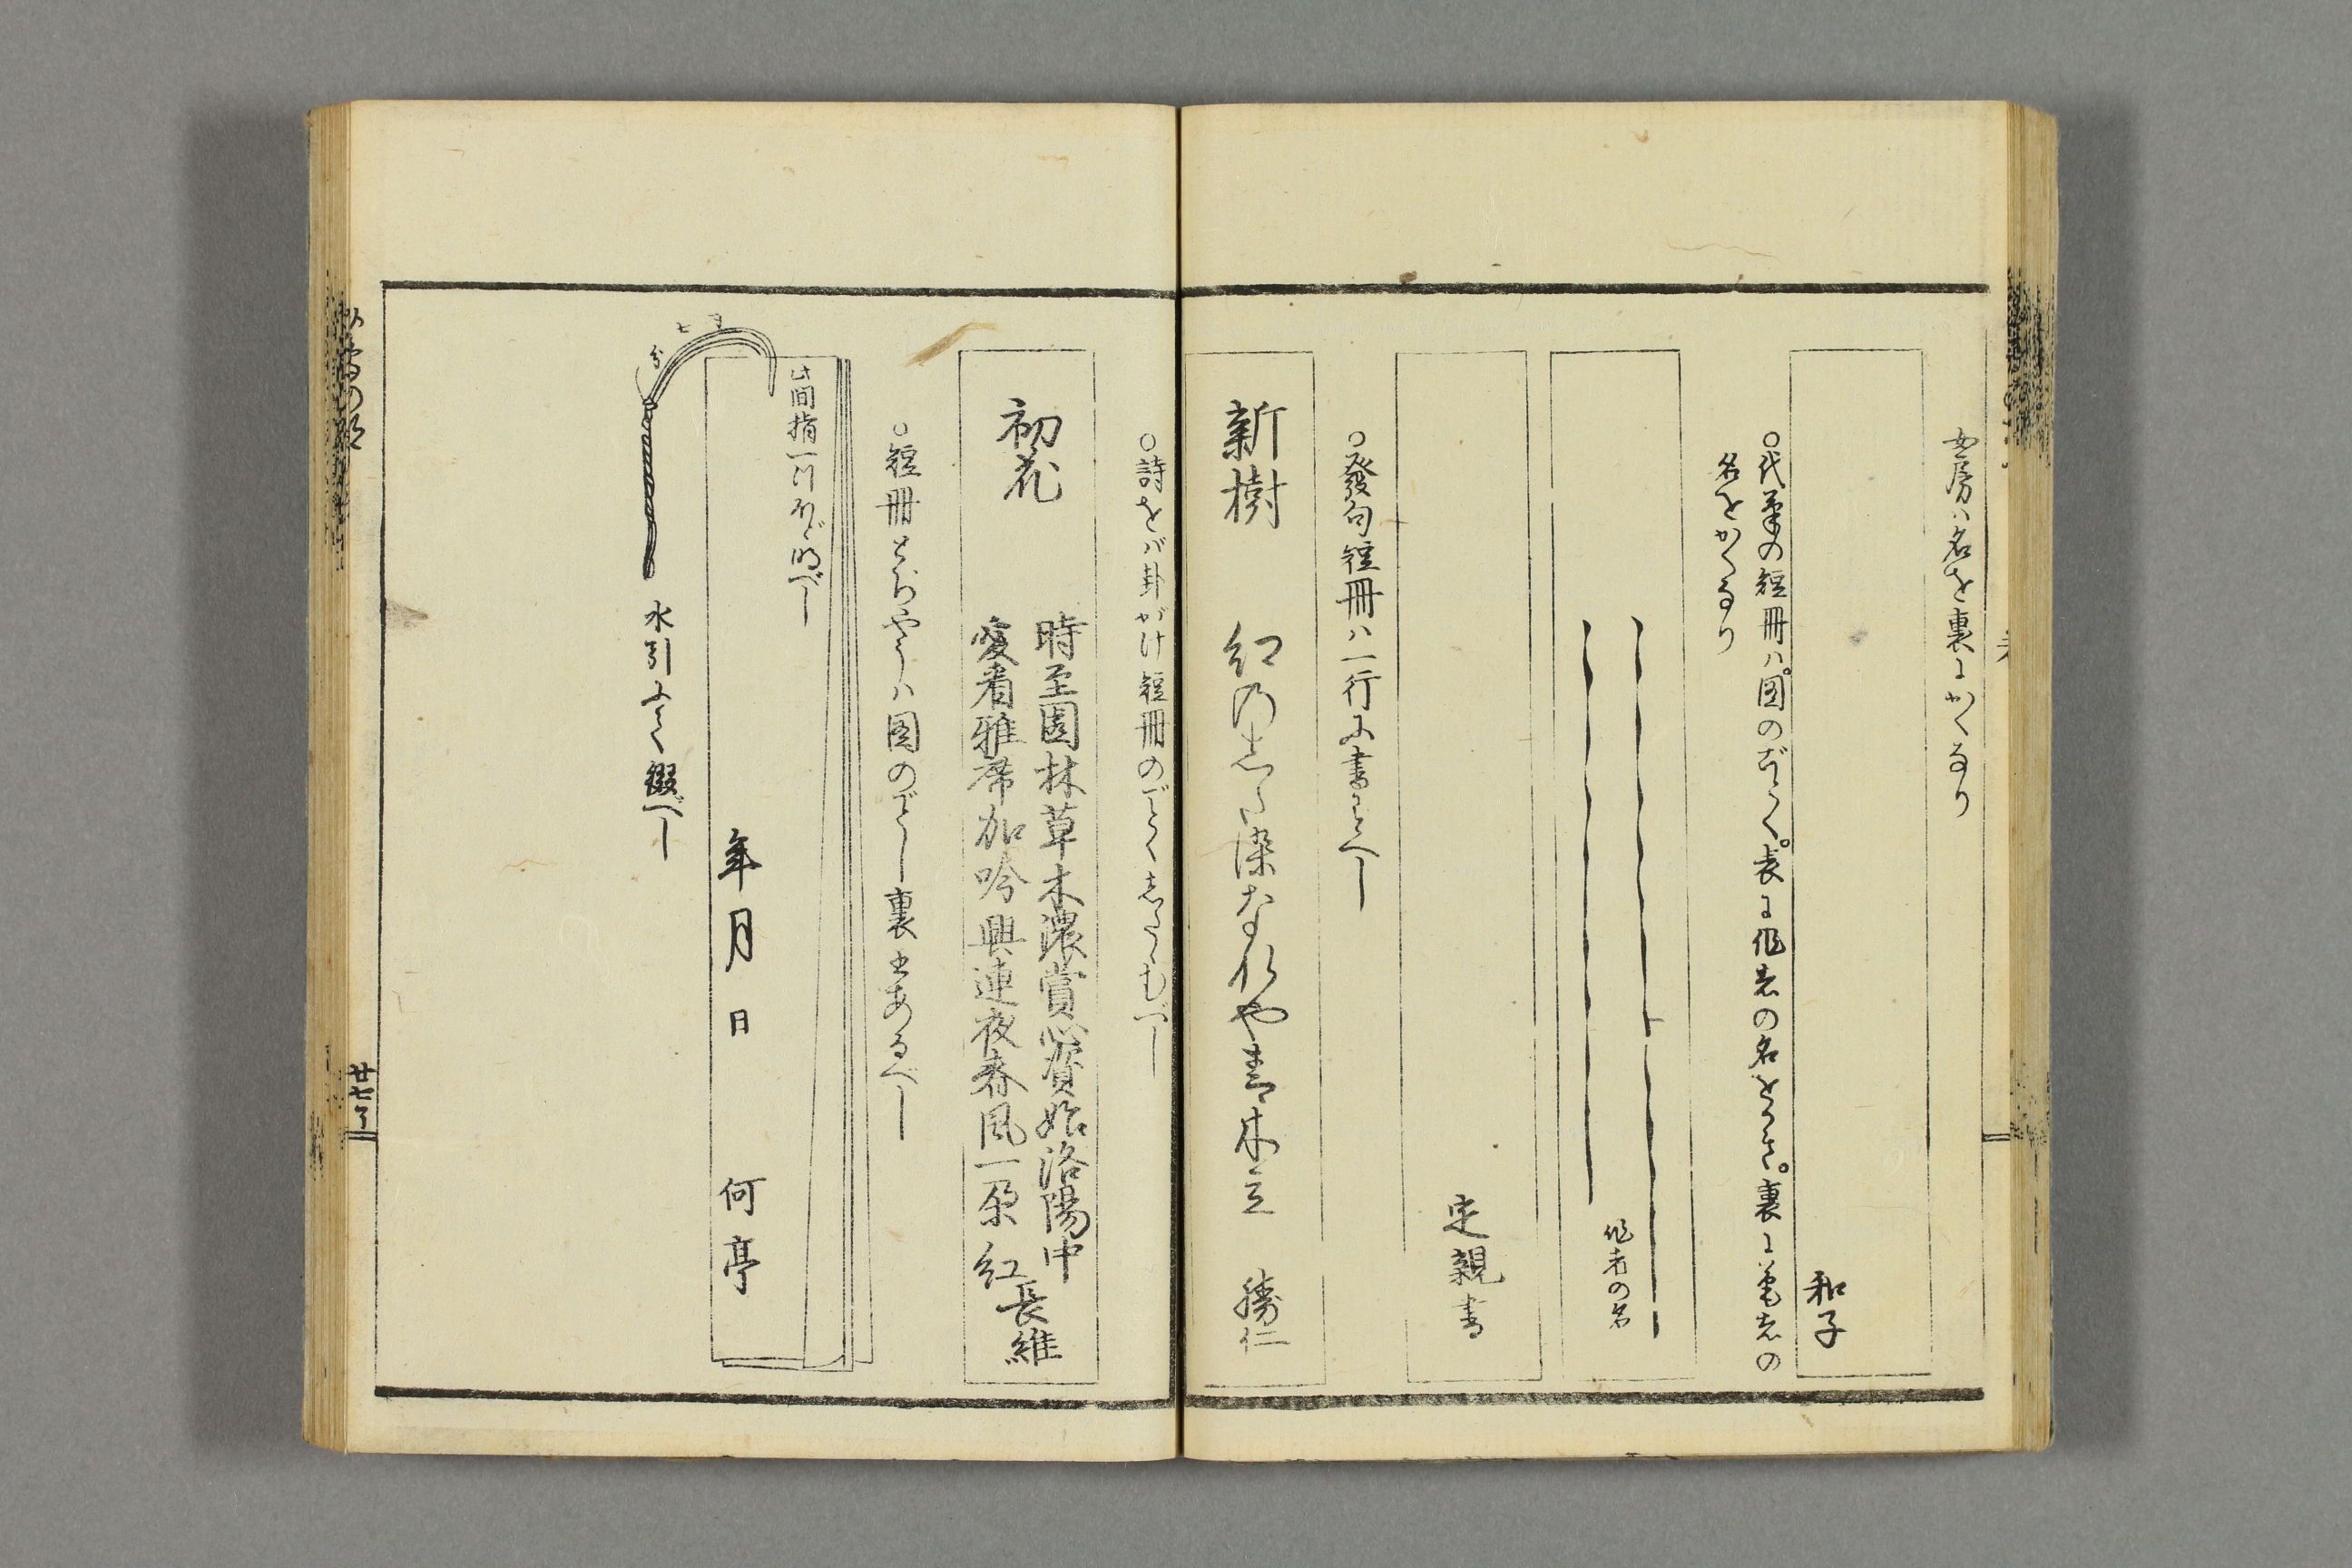 女房ハ名を裏にかくなり
和子
○代筆の短冊ハ。図のごとく。表に作者の名をかき。裏に筆者の
名をかくなり
作者の名
定親書
○發句短冊ハ一行に書とべし
新樹
紅の志た染なれや青木立
勝仁
○詩をバ卦がけ短冊のごとくしたゝむべし
初花
時至園林草木濃賞心賓始洛陽中
愛看雅席加吟興連夜春風一朶紅
長維
○短冊とぢやうハ図のごとし裏に書あるべし
此間指一ツほど明べし
年月日
何亭
水引にて綴べし
廿七了